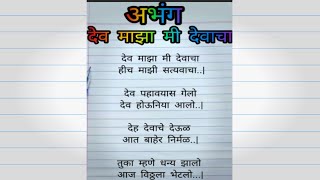 अभंग
देव माझा मी देवाचा
देव माझा मी देवाचा
हीच माझी सत्यवाचा..|
देव पहावयास गेलो
देव होऊनिया आलो..|
देह देवाचे देऊळ
आत बाहेर निर्मळ..|
तुका म्हणे धन्य झालो
आज विठ्ठला भेटलो...|